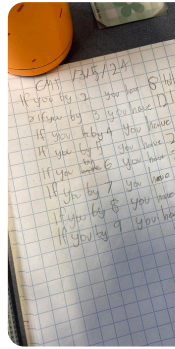 If you by 2 you have 8
If you by 3 you have 12
If you by 4 you have
If you by 5 you have 2
If you by 6 you have
If you by 7 you
If you by 8 you have
If you by 9 you have